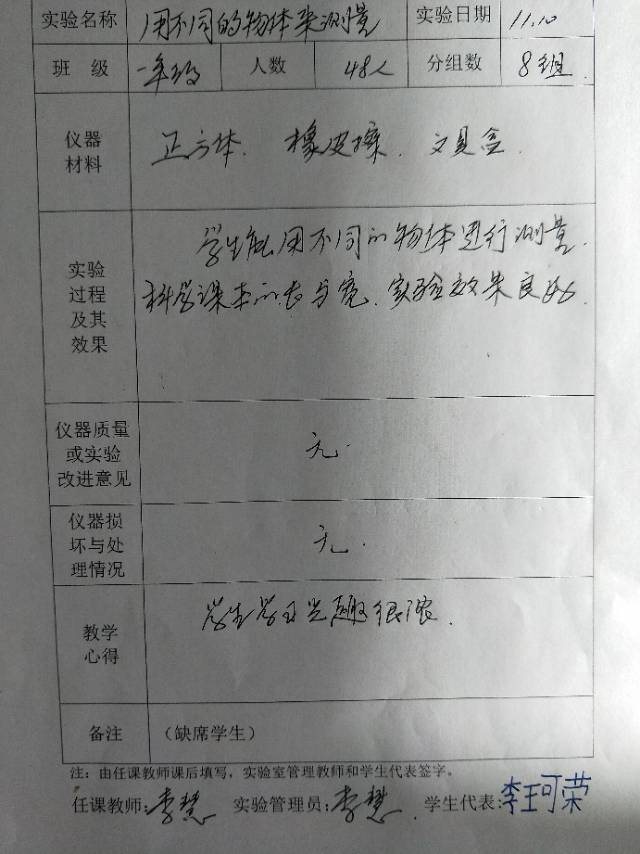 实验名称 用不同的物体来测量 实验日期 11.10
班 级 一年级 人数 48人 分组数 8组
仪器
材料
正方体、橡皮擦、文具盒
实验
过程
及其
效果
学生能用不同的物体进行测量
科学课本的长与宽、实验效果良好
仪器质量
或实验
改进意见
无.
仪器损
坏与处
理情况
无.
教学
心得
学生学习兴趣很浓.
备注 （缺席学生）
注：由任课教师课后填写，实验室管理教师和学生代表签字。
任课教师:李慧 实验管理员:李慧 学生代表:李珂荣